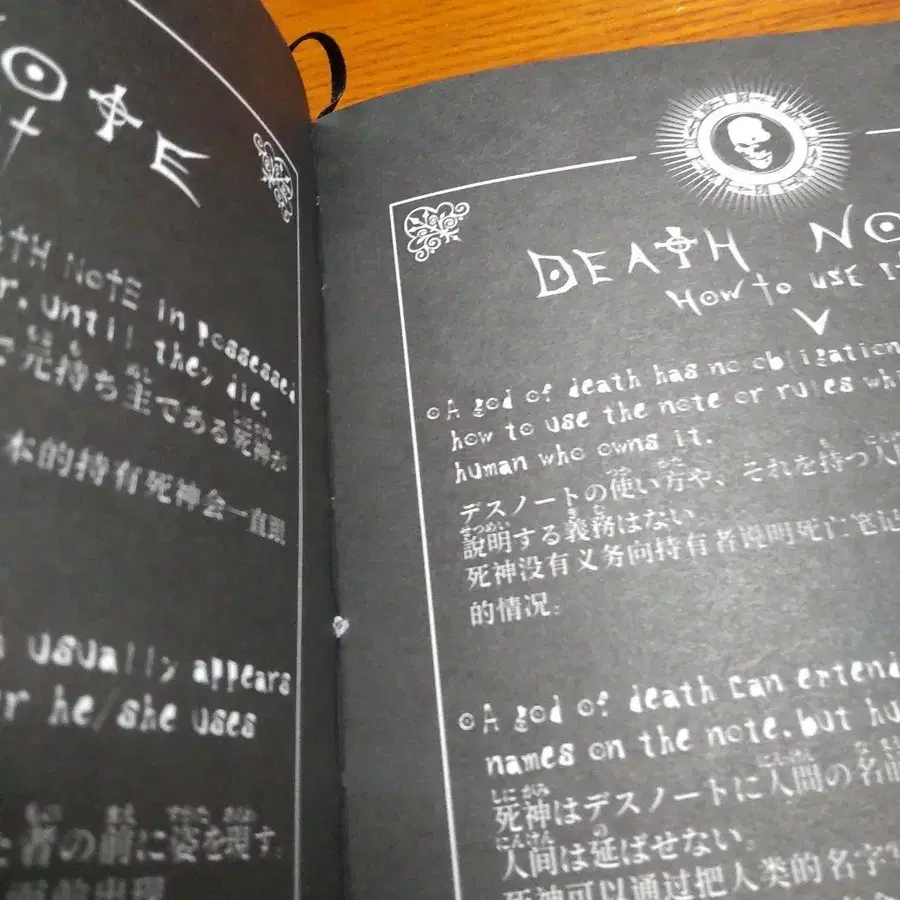 OTE
DEATH NOTE in possessed
r, until they die.
元持ち主である死神が
本的持有死神会一直跟
usually appears
r he/she uses
た者の前に姿を現す。
DEATH NO
How to use it
A god of death has no obligation
how to use the note or rules whi
human who owns it.
デスノートの使い方や、それを持つ人間
説明する義務はない
死神没有义务向持有者说明死亡笔记
的情况。
A god of death can extend
names on the note, but hu
死神はデスノートに人間の名前
人間は延ばせない。
死神可以通过把人类的名字